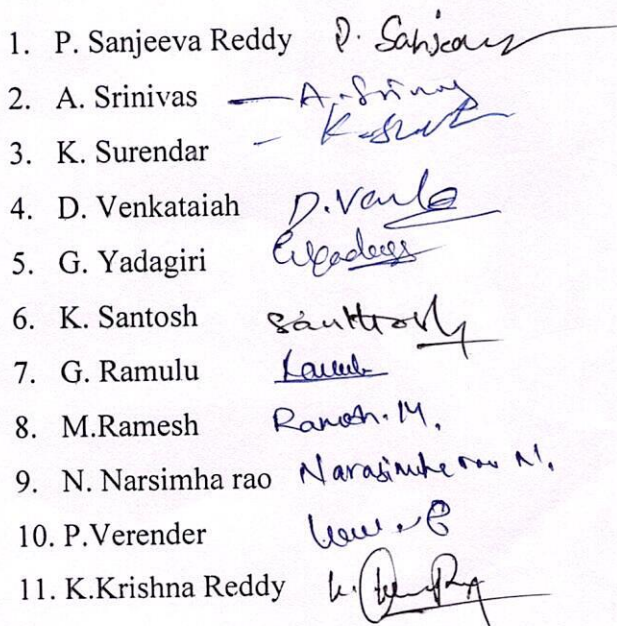 1. P. Sanjeeva Reddy P. Sanjeev
2. A. Srinivas A. Sriniv
3. K. Surendar
4. D. Venkataiah D. Venka
5. G. Yadagiri
6. K. Santosh Santhosh
7. G. Ramulu
8. M.Ramesh Ramesh. M.
9. N. Narsimha rao Narasimha rao N.
10. P.Verender
11. K.Krishna Reddy